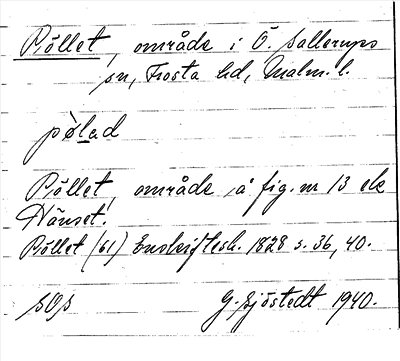 Pöllet, område i Ö. Sallerups
sn, Frosta hd, Malm. l.
pø̀lad
Pöllet, område, å fig. nr 13 ek
Hänset.
Pöllet (61) Enskiftesh. 1828 s. 36, 40.
G. Sjöstedt 1940.